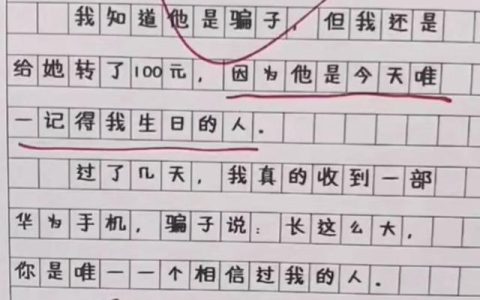 我知道他是骗子，但我还是
给她转了100元，因为他是今天唯
一记得我生日的人.
过了几天，我真的收到一部
华为手机，骗子说：长这么大，
你是唯一一个相信过我的人.